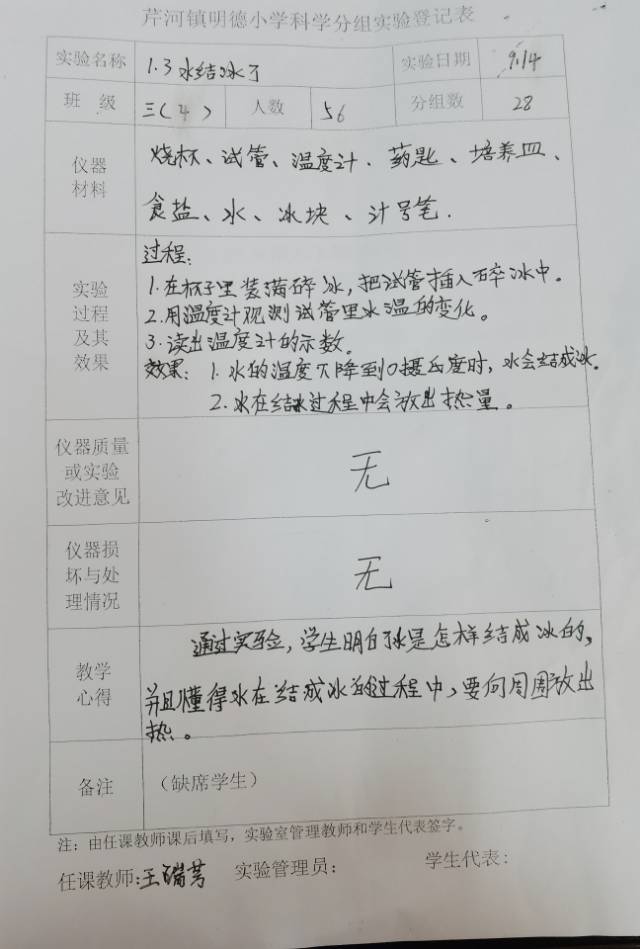 芹河镇明德小学科学分组实验登记表
实验名称 1.3水结冰了 实验日期 9.14
班 级 三(4) 人数 56 分组数 28
仪器
材料
烧杯、试管、温度计、药匙、培养皿、
食盐、水、冰块、计号笔.
实验
过程
及其
效果
过程:
1.在杯子里装满碎冰,把试管插入碎冰中。
2.用温度计观测试管里水温的变化。
3.读出温度计的示数。
效果: 1.水的温度下降到0摄氏度时,水会结成冰.
2.水在结冰过程中会放出热量。
仪器质量
或实验
改进意见
无
仪器损
坏与处
理情况
无
教学
心得
通过实验,学生明白了水是怎样结成冰的,
并且懂得水在结成冰的过程中,要向周围放出
热。
备注 (缺席学生)
注:由任课教师课后填写,实验室管理教师和学生代表签字。
任课教师:王瑞芳 实验管理员: 学生代表: